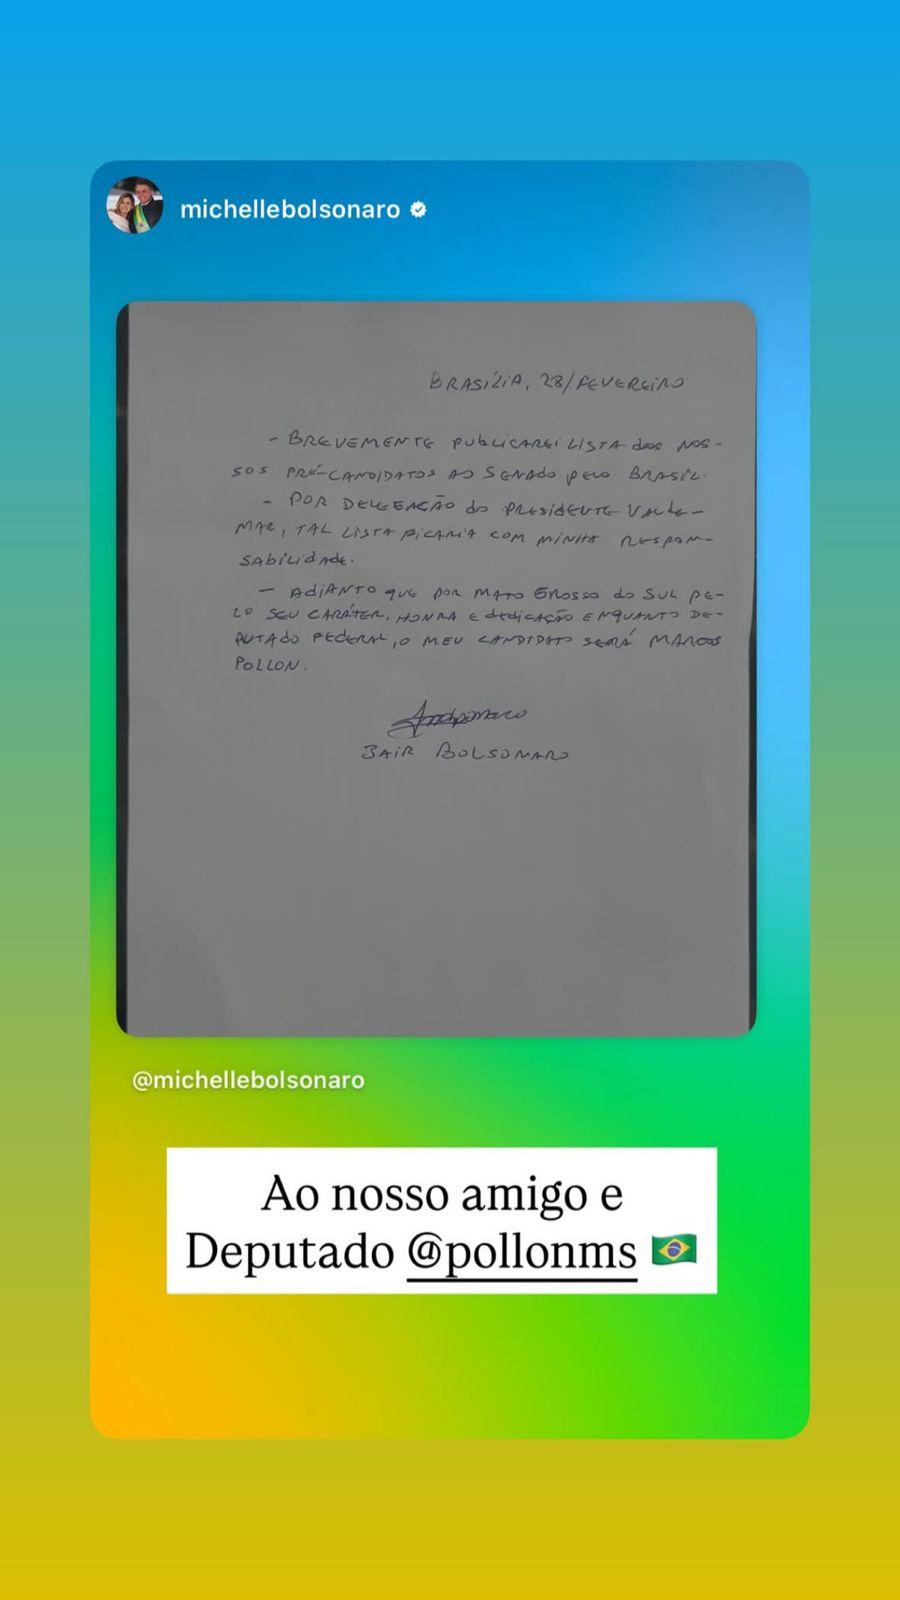 michellebolsonaro
BRASÍLIA, 28/FEVEREIRO
- BREVEMENTE PUBLICAREI LISTA dos NOS-
SOS PRÉ-CANDIDATOS AO SENADO pelo BRASIL.
- POR DELEGAÇÃO do PRESIDENTE VALDE-
MAR, TAL LISTA FICARIA COM MINHA RESPON-
SABILIDADE.
- ADIANTO que POR MATO GROSSO do SUL PE-
LO SEU CARÁTER, HONRA E dEdICAÇÃO ENQUANTO DE-
PUTADO FEDERAL, O MEU CANDIDATO SERÁ MARCOS
POLLON.
JAIR BOLSONARO
@michellebolsonaro
Ao nosso amigo e
Deputado @pollonms 🇧🇷